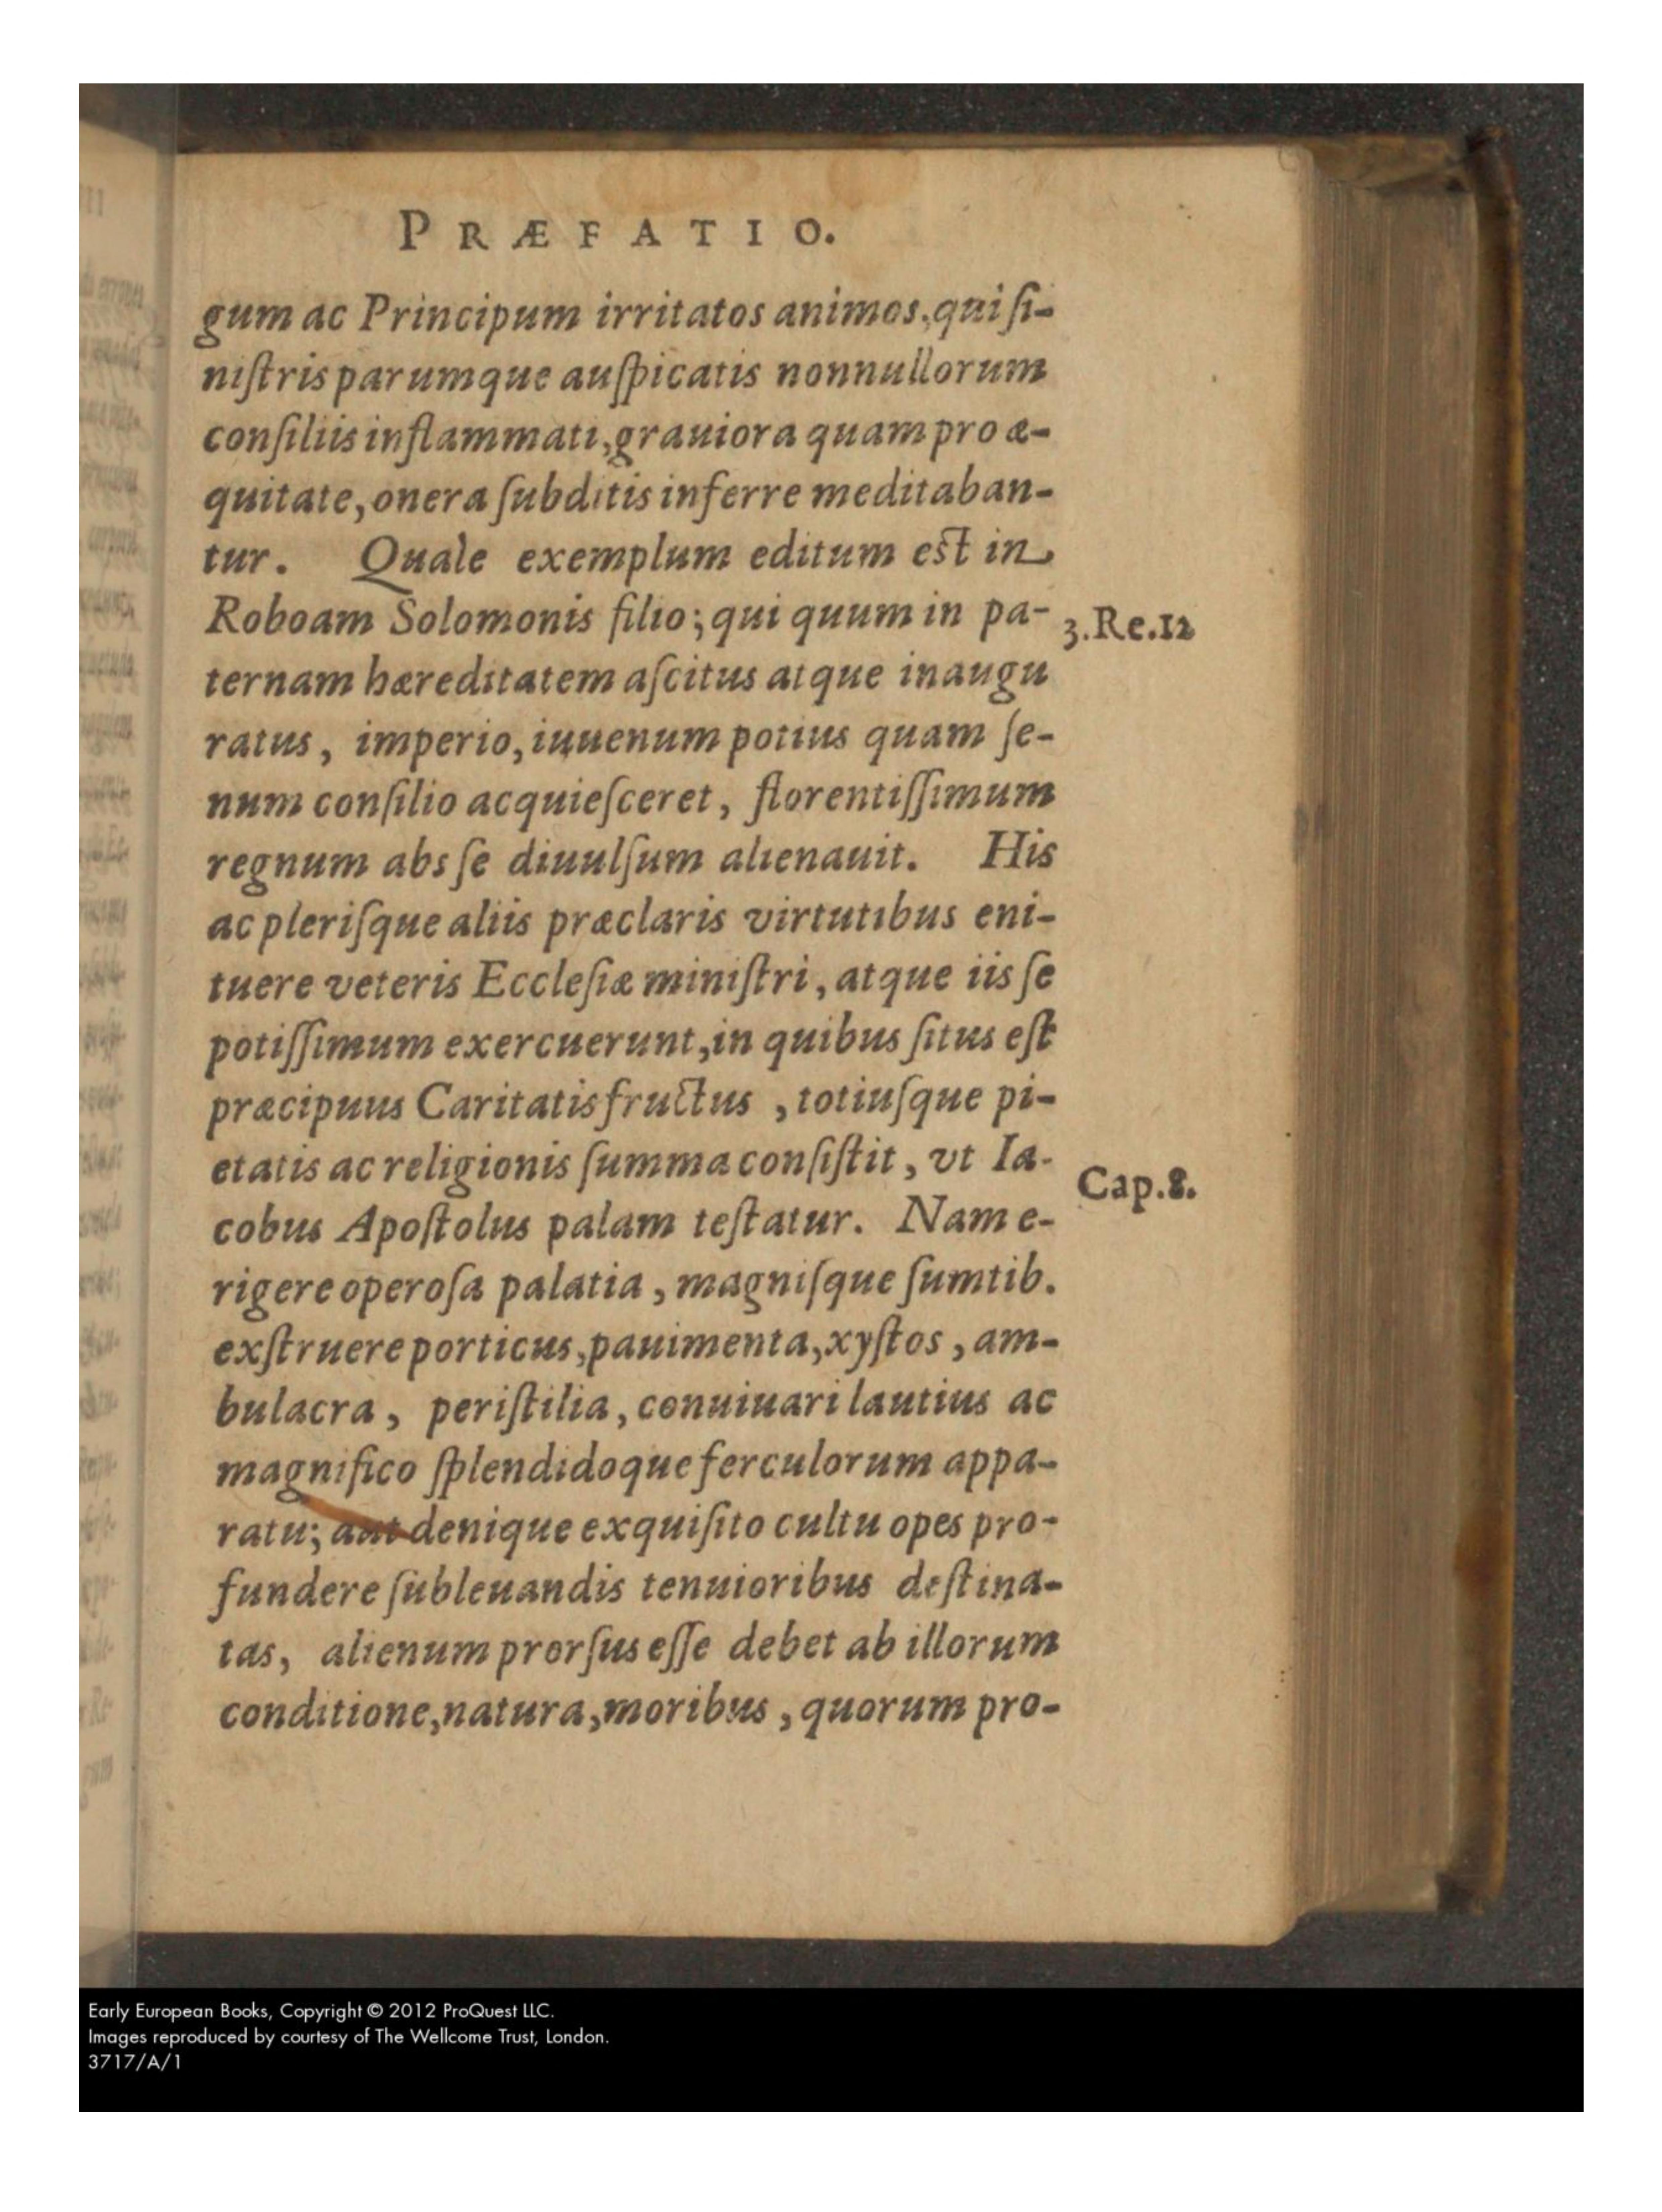 PRÆFATIO.
gum ac Principum irritatos animos, qui ſi-
niſtris parumque auſpicatis nonnullorum
conſiliis inflammati, grauiora quam pro æ-
quitate, onera ſubditis inferre meditaban-
tur. Quale exemplum editum est in
Roboam Solomonis filio; qui quum in pa-
3.Re.12
ternam hæreditatem aſcitus atque inaugu
ratus, imperio, iuuenum potius quam ſe-
num conſilio acquieſceret, florentiſſimum
regnum abs ſe diuulſum alienauit. His
ac pleriſque aliis præclaris virtutibus eni-
tuere veteris Eccleſiæ miniſtri, atque iis ſe
potiſſimum exercuerunt, in quibus ſitus eſt
præcipuus Caritatis fructus, totiuſque pi-
etatis ac religionis ſumma conſiſtit, vt Ia-
Cap.8.
cobus Apoſtolus palam teſtatur. Nam e-
rigere operoſa palatia, magniſque ſumtib.
exſtruere porticus, pauimenta, xyſtos, am-
bulacra, periſtilia, conuiuari lautius ac
magnifico ſplendidoque ferculorum appa-
ratu; aut denique exquiſito cultu opes pro-
fundere ſubleuandis tenuioribus deſtina-
tas, alienum prorſus eſſe debet ab illorum
conditione, natura, moribus, quorum pro-
Early European Books, Copyright © 2012 ProQuest LLC.
Images reproduced by courtesy of The Wellcome Trust, London.
3717/A/1